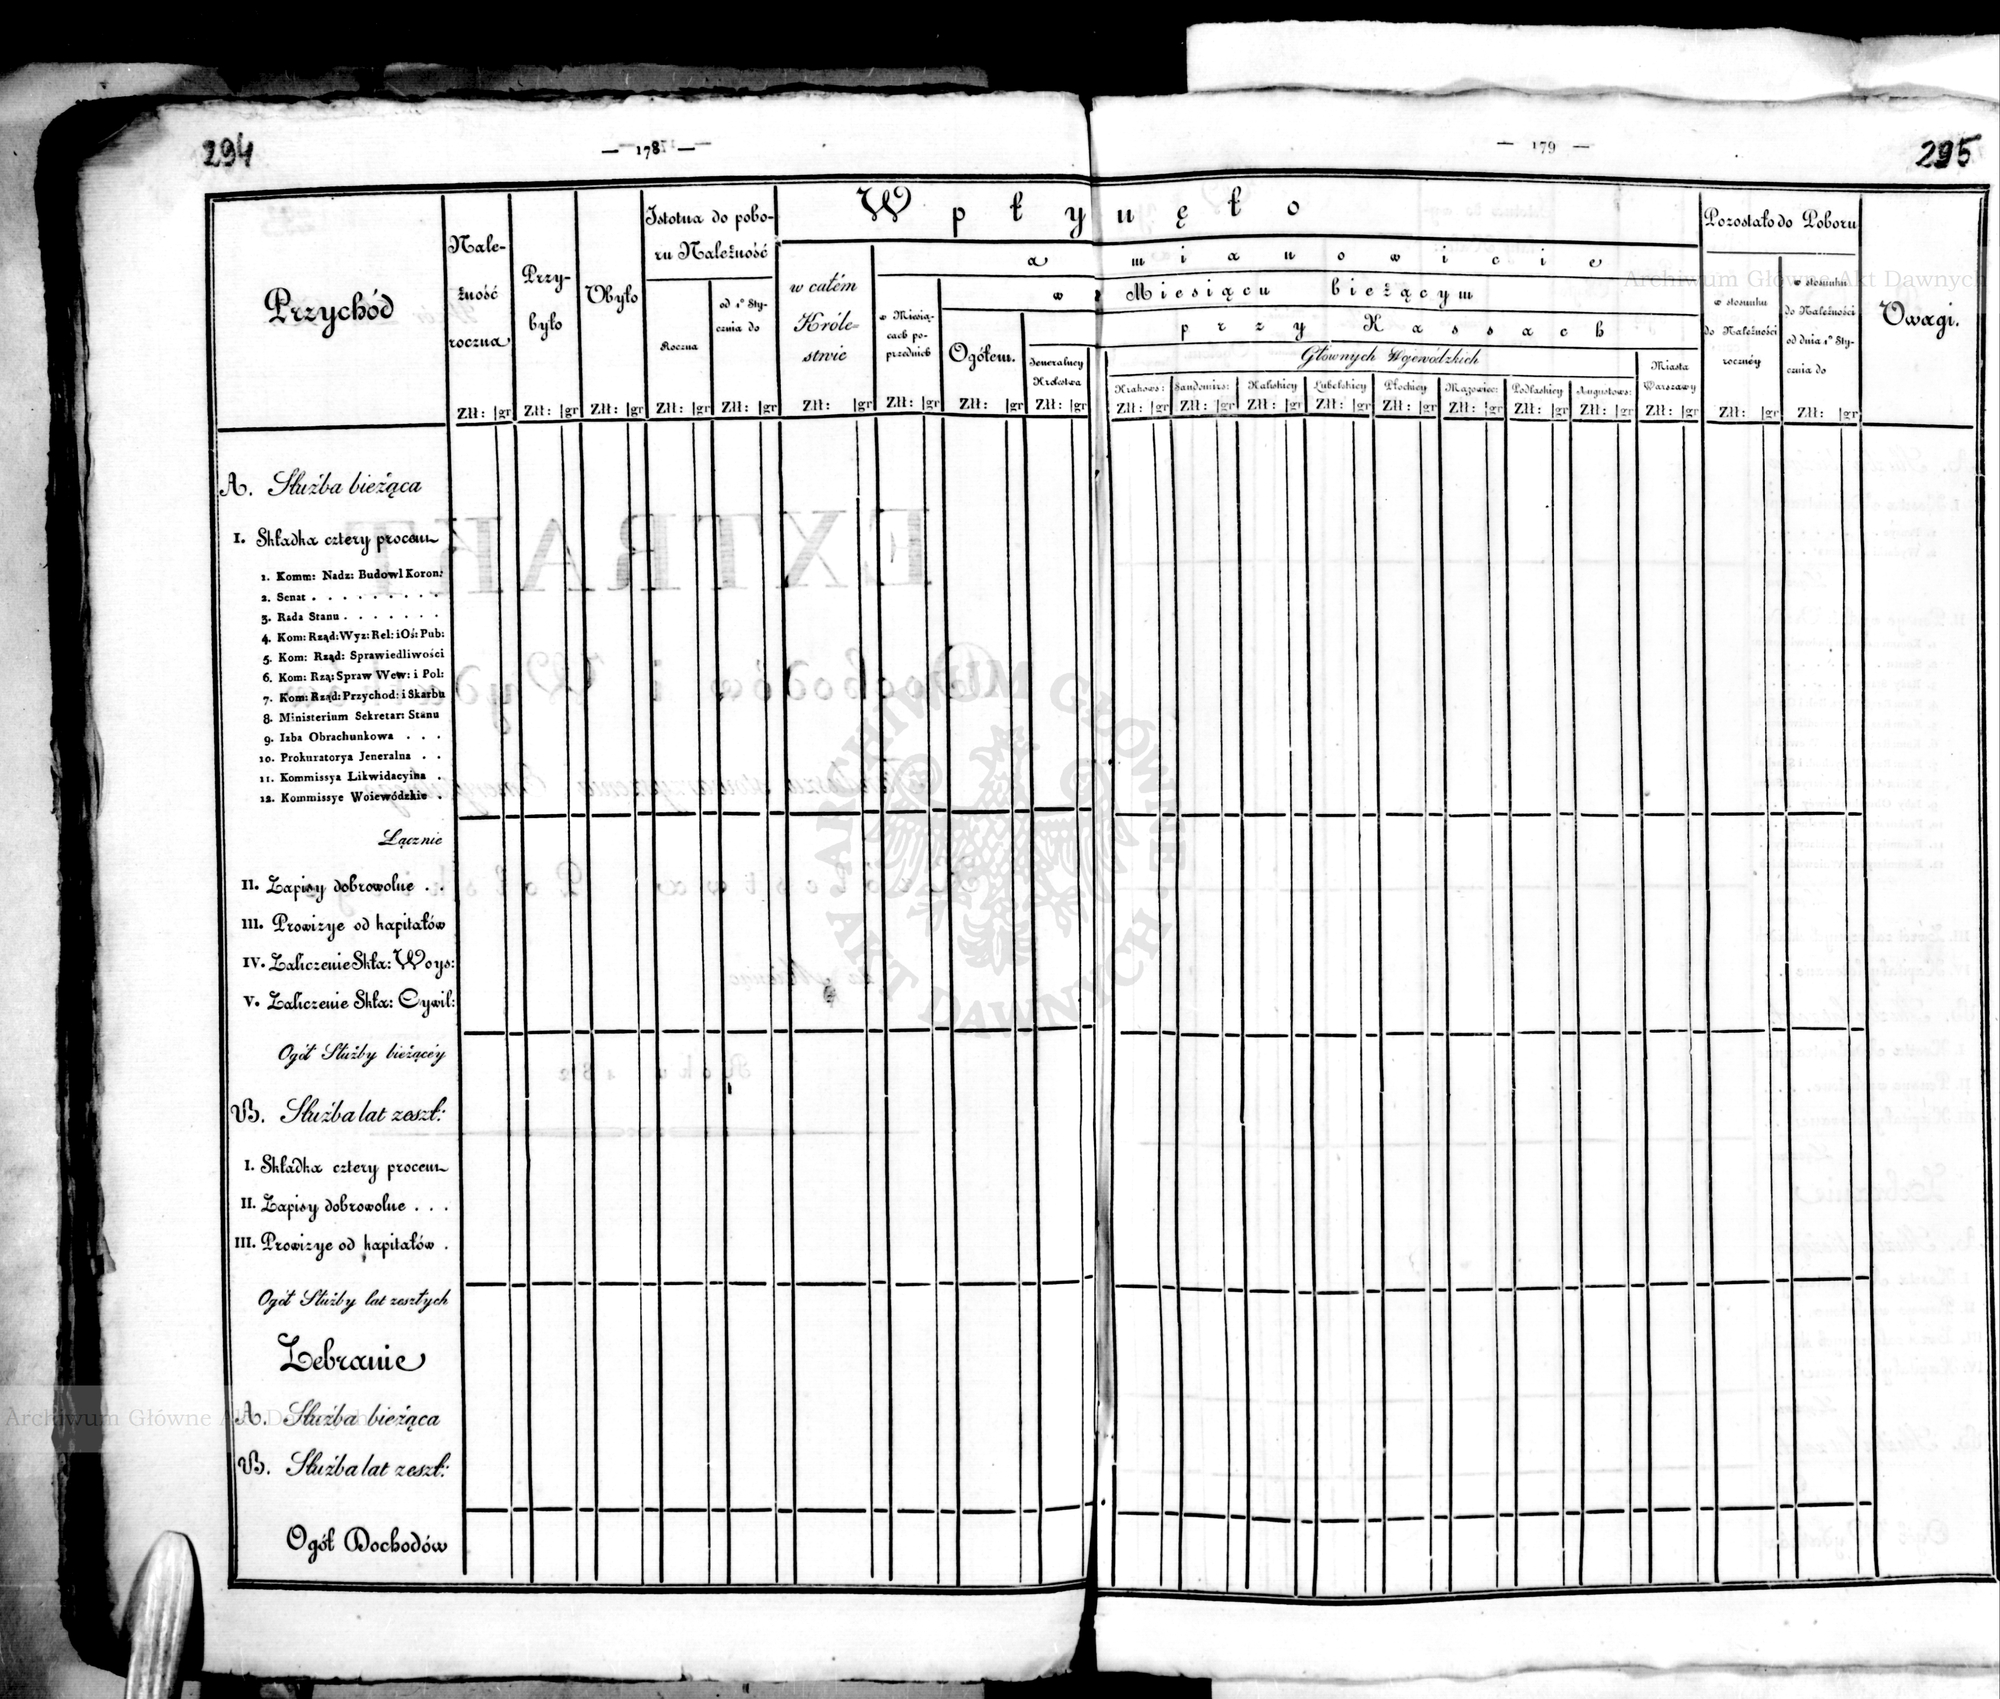 294
— 178 —
— 179 —
295
Przychód
Nale-
żność
roczna
Przy-
było
Ubyło
Istotna do pobo-
ru Należność
Roczna
od 1º Sty-
cznia do
Wpłynęło
w całém
Króle-
stwie
a mianowicie
w Miesią-
cach po-
przednich
w Miesiącu bieżącym
Ogółem.
przy Kassach
Jeneralney
Królestwa
Głównych Wojewódzkich
Krakows:
Sandomirs:
Kaliskiey
Lubelskiey
Płockiey
Mazowiec:
Podlaskiey
Augustows:
Miasta
Warszawy
Pozostało do Poboru
w stosunku
do Należności
roczney
w stosunku
do Należności
od dnia 1º Sty-
cznia do
Uwagi.
Złt: gr Złt: gr Złt: gr Złt: gr Złt: gr Złt: gr Złt: gr Złt: gr Złt: gr Złt: gr Złt: gr Złt: gr Złt: gr Złt: gr Złt: gr Złt: gr Złt: gr Złt: gr Złt: gr Złt: gr
A. Służba bieżąca
I. Składka cztery procen
1. Komm: Nadz: Budowl Koron:
2. Senat . . . . . . . . .
3. Rada Stanu . . . . . . .
4. Kom: Rząd: Wyz: Rel: i Oś: Pub:
5. Kom: Rząd: Sprawiedliwości
6. Kom: Rzą: Spraw Wew: i Pol:
7. Kom: Rząd: Przychod: i Skarbu
8. Ministerium Sekretar: Stanu
9. Izba Obrachunkowa . . .
10. Prokuratorya Jeneralna . .
11. Kommissya Likwidacyina .
12. Kommissye Woiewódzkie .
Łącznie
II. Zapisy dobrowolne . .
III. Prowizye od kapitałów
IV. Zaliczenie Skła: Woys:
V. Zaliczenie Skła: Cywil:
Ogół Służby bieżącéy
B. Służba lat zeszł:
I. Składka cztery procen
II. Zapisy dobrowolne . . .
III. Prowizye od kapitałów .
Ogół Służby lat zeszłych
Zebranie
A. Służba bieżąca
B. Służba lat zeszł:
Ogół Dochodów
ARCHIWUM GŁÓWNE
AKT DAWNYCH
Archiwum Główne Akt Dawnych
Archiwum Główne Akt Dawnych